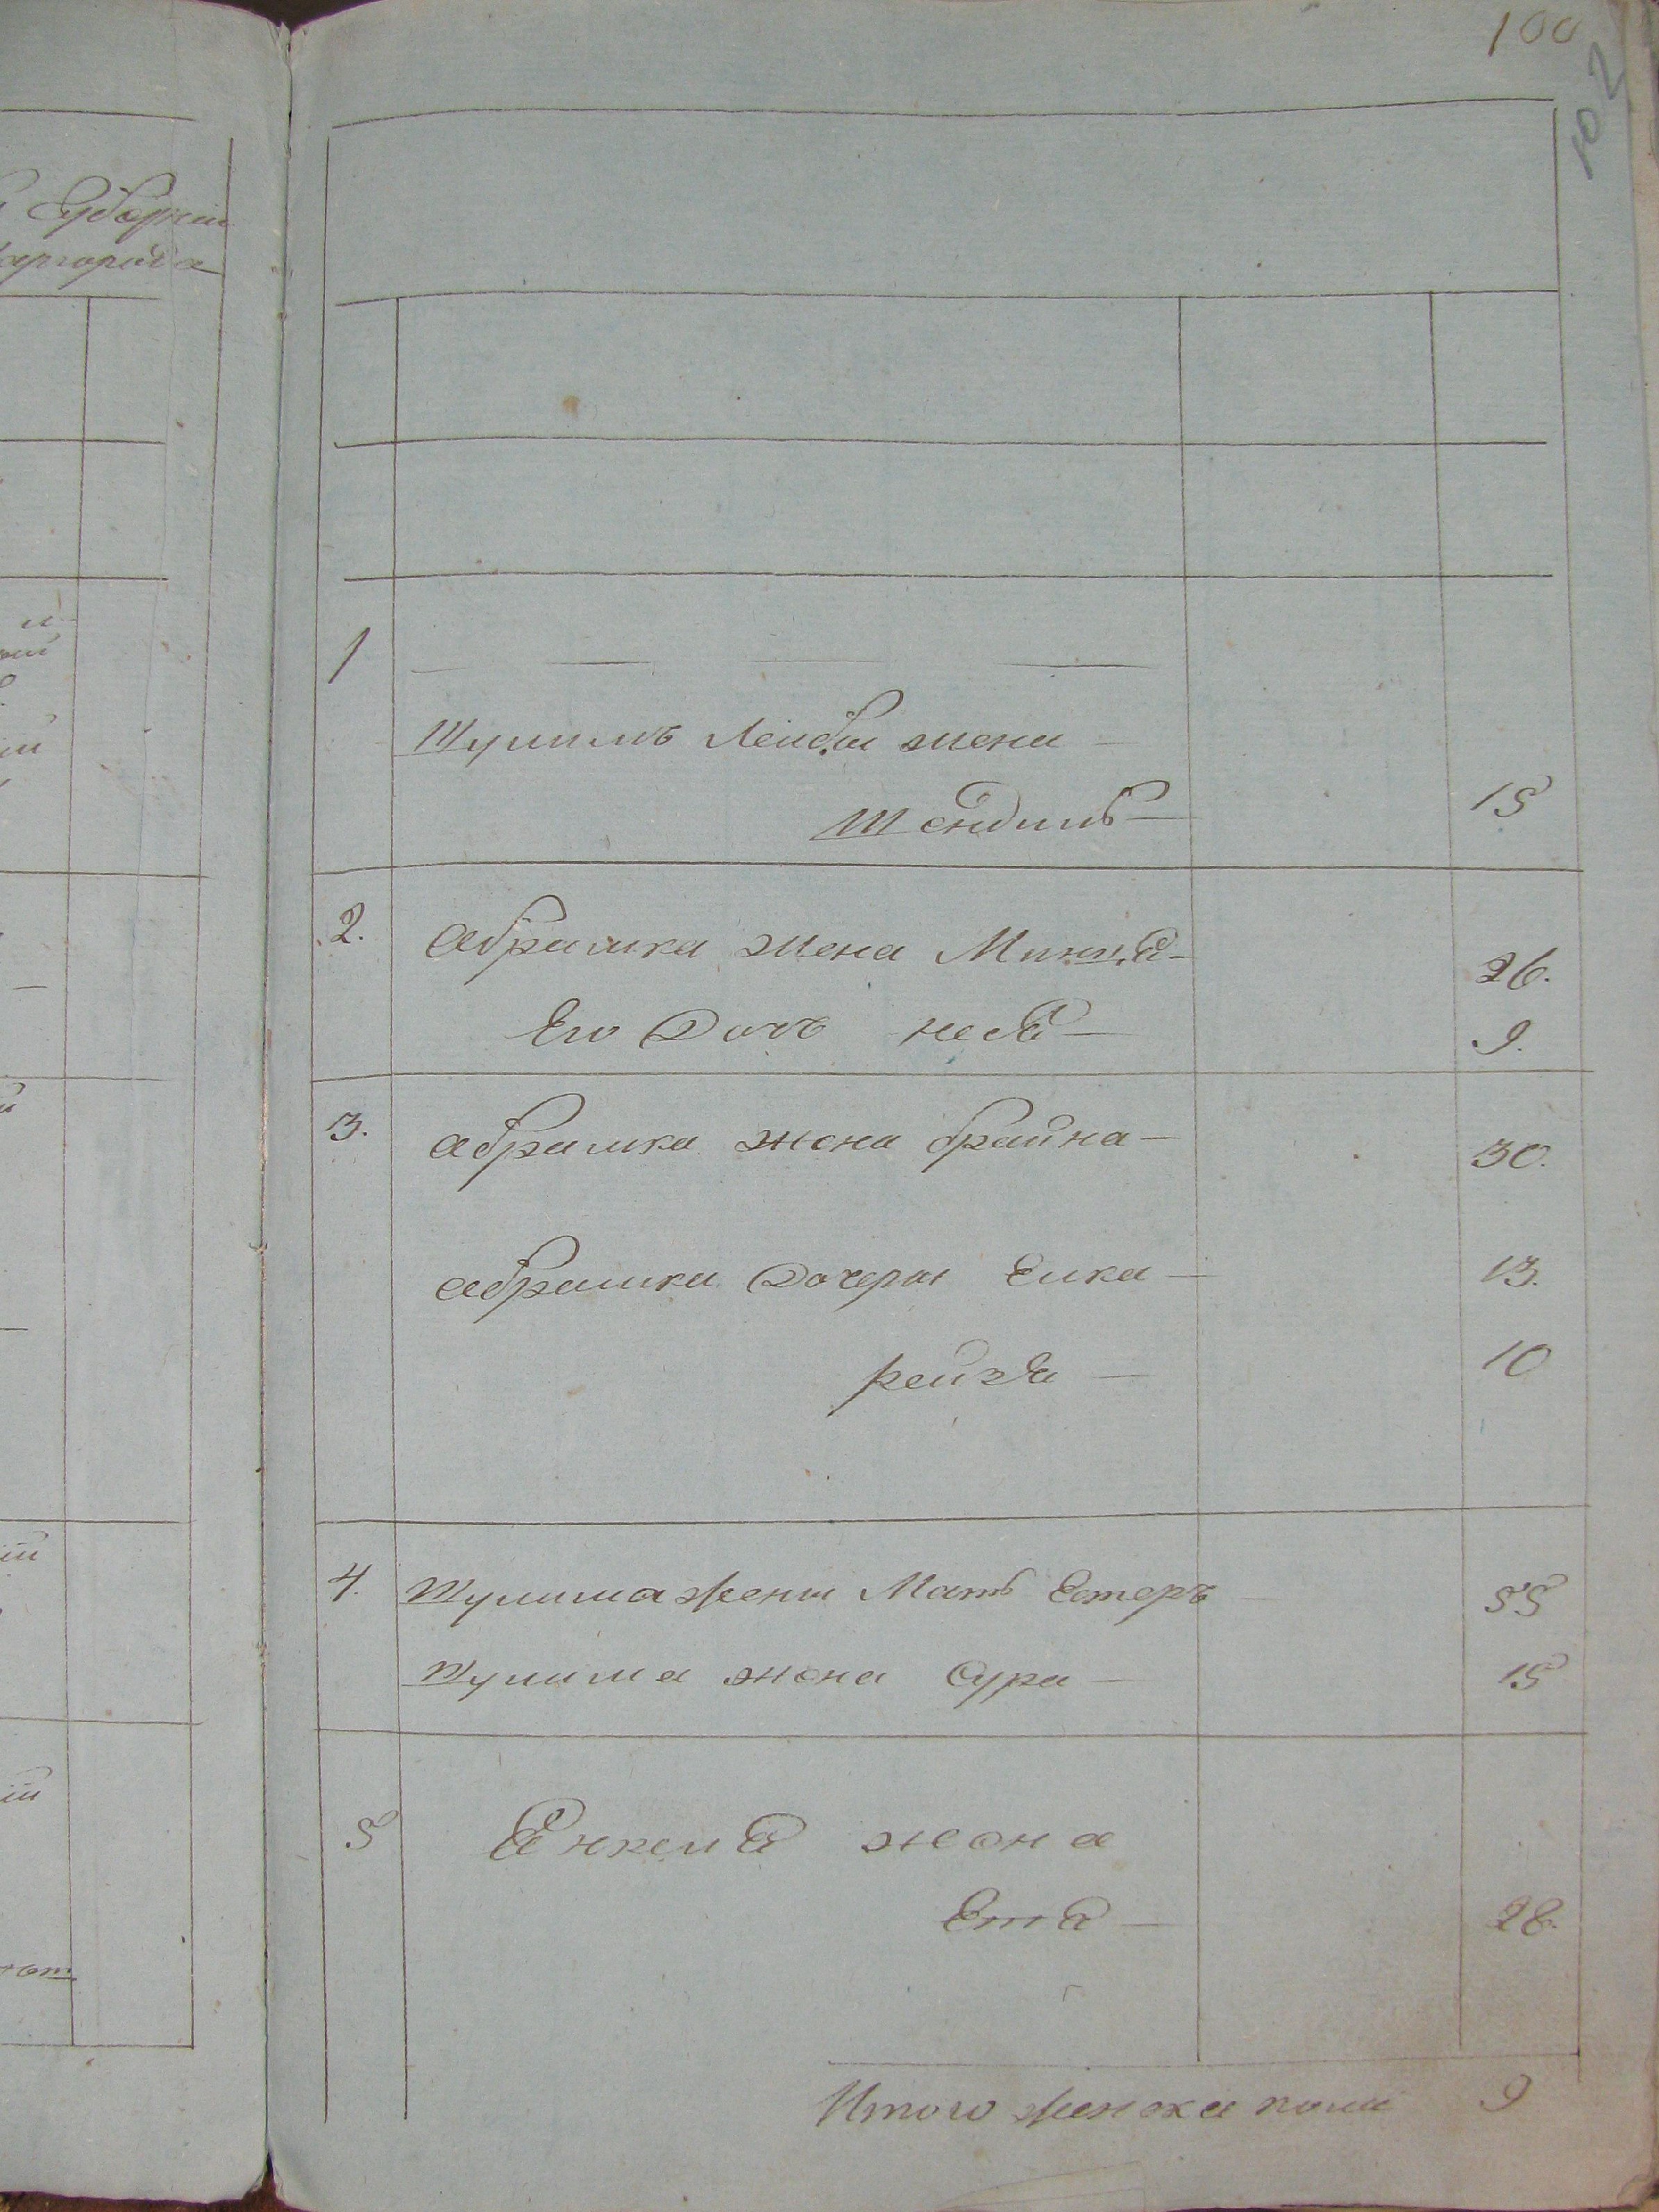 100
102
Губернии
1
Шулимъ Лейбы жена
Шендиль
15
2. Абрамка жена Минца
26.
Его Дочь неся
9.
3. Абрамка жена брайна
30.
Абрамка Дочеры Елка
13.
рейзя
10
4. Шулима жены Мать Естеръ
55
Шулима жена Сура
15
5 Янкеля жона
Етя
28.
Итого женска пола 9